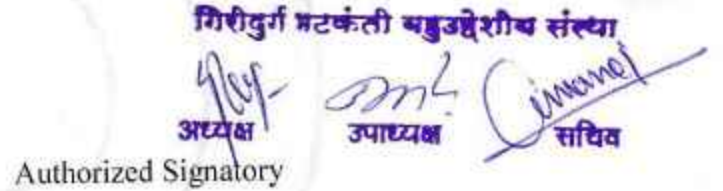 गिरीदुर्ग भटकंती बहुउद्देशीय संस्था
अध्यक्ष उपाध्यक्ष सचिव
Authorized Signatory